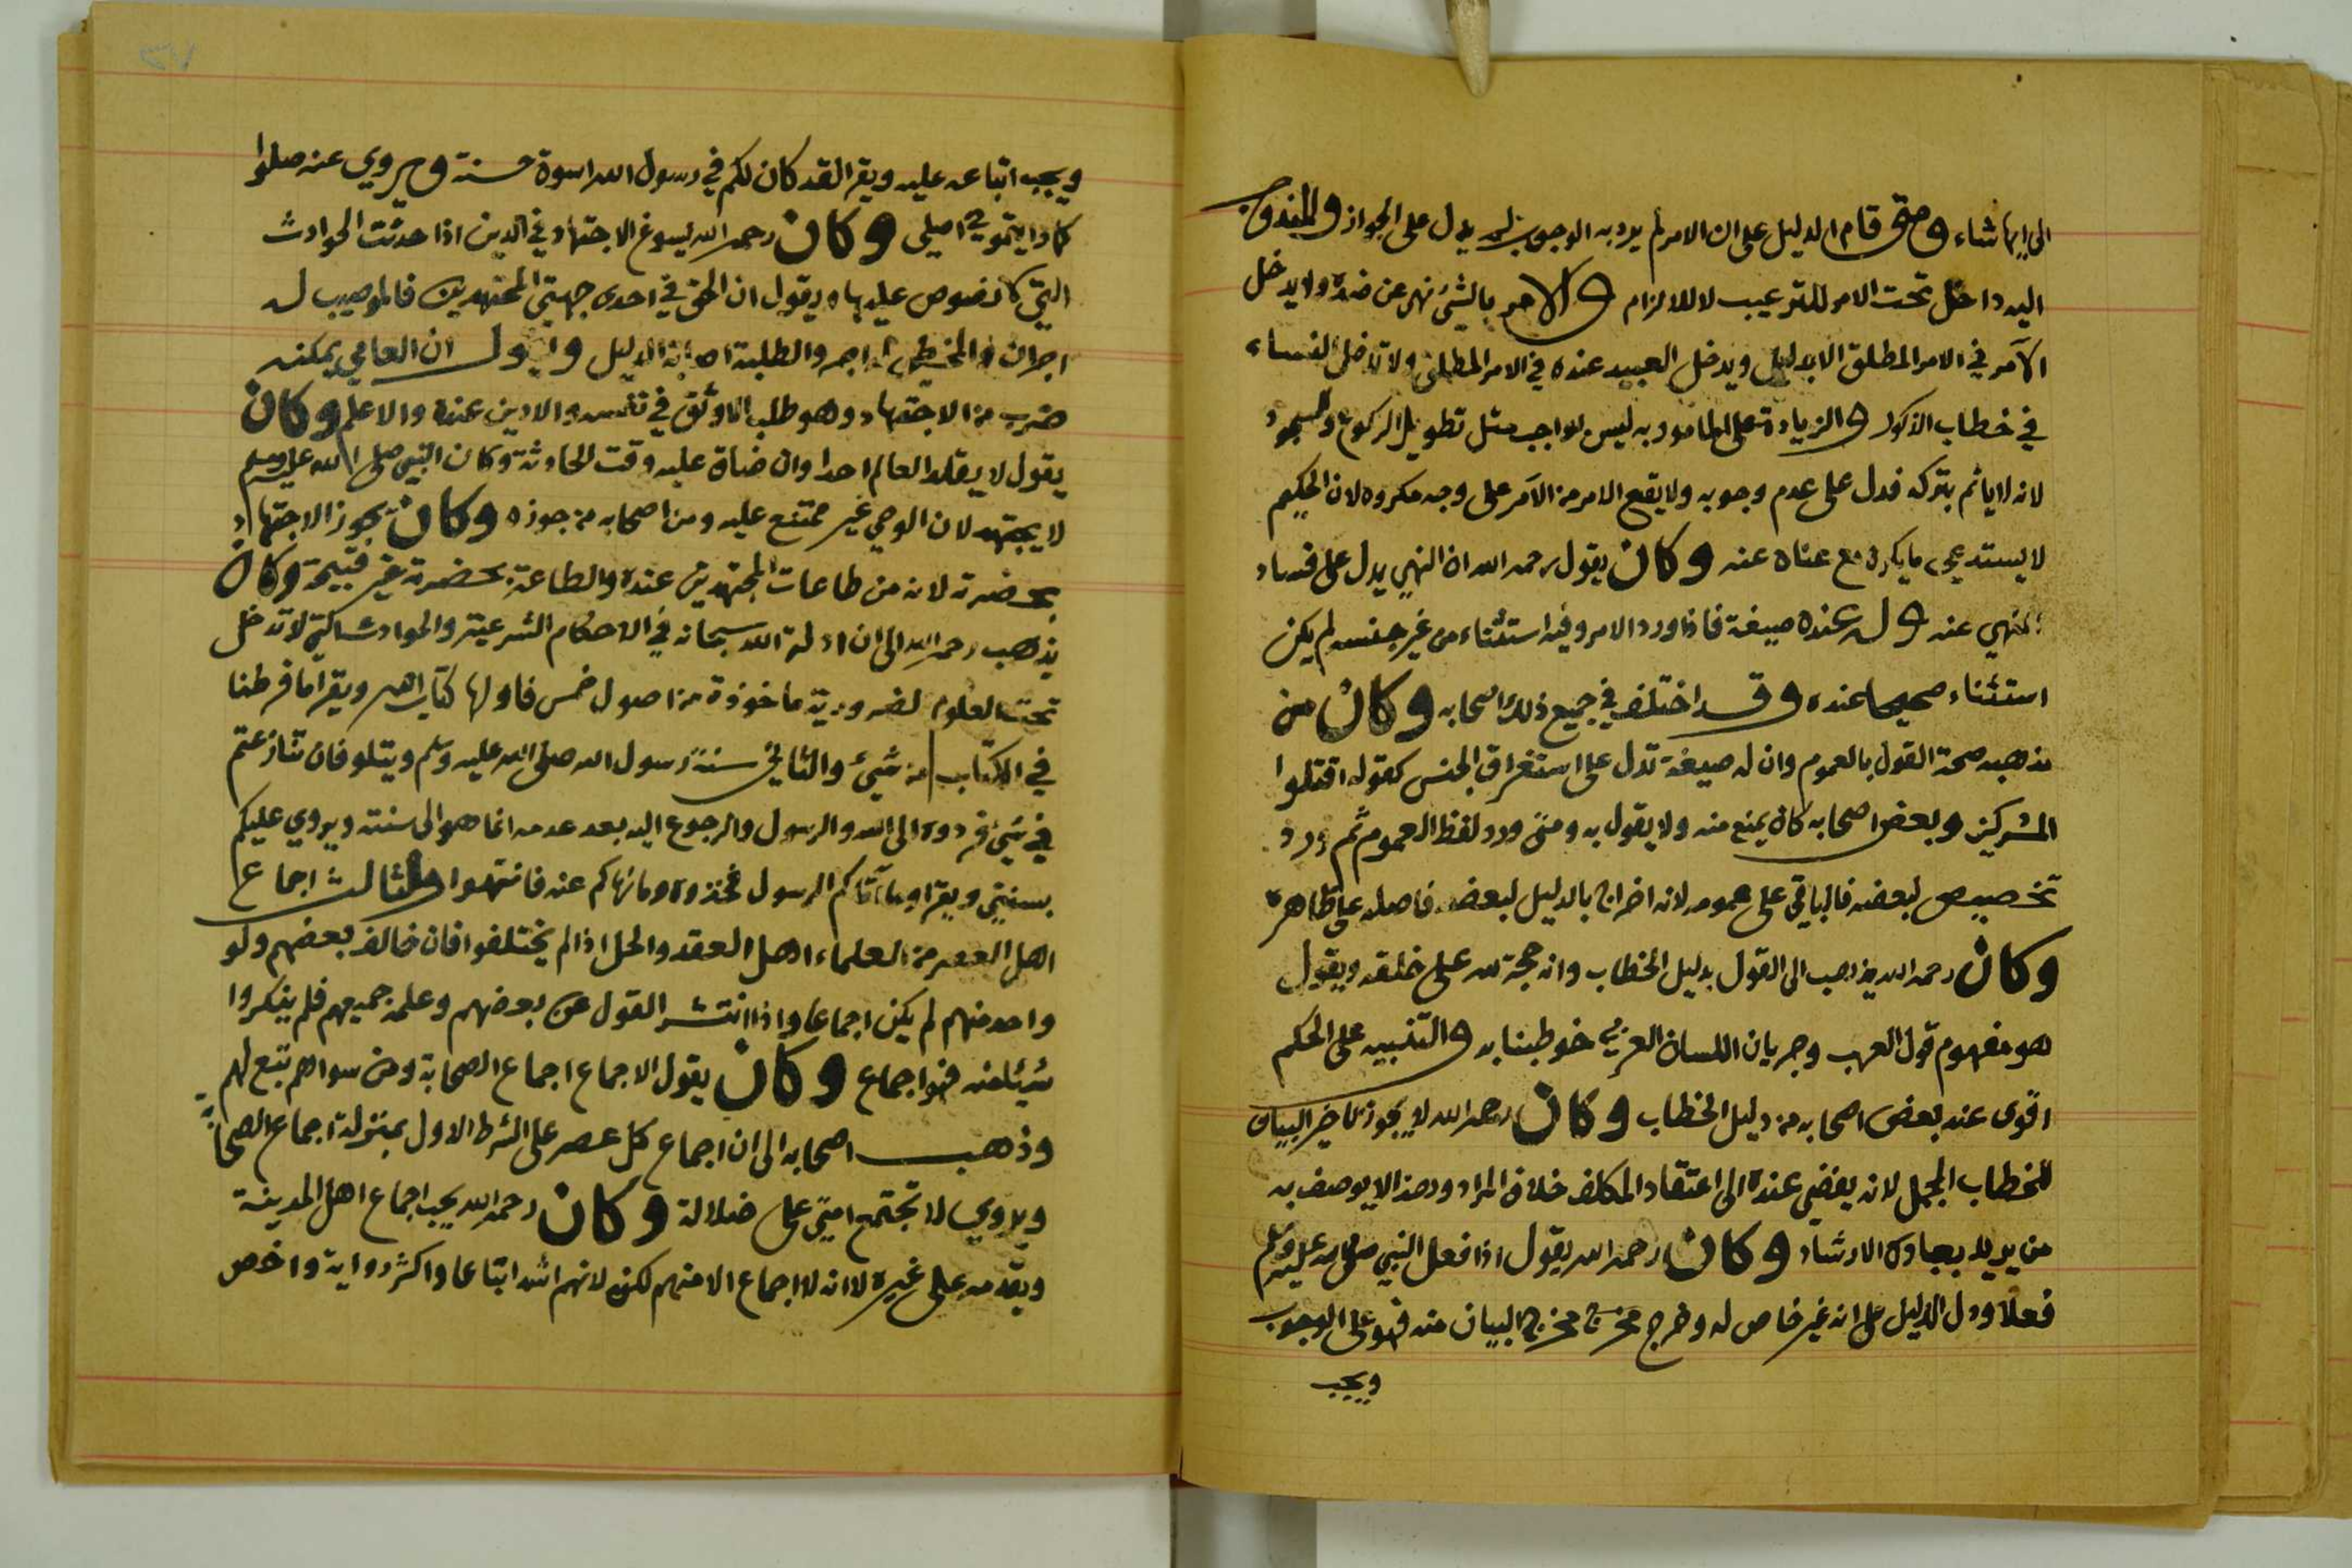 الى ايها شاء ومتى قام الدليل على ان الامر لم يرد به الوجوب لم يدل على الجواز والمندوب
اليه داخل تحت الامر للترغيب لا للالزام والامر بالشيء نهي عن ضده ولا يدخل
الآمر في الامر المطلق الا بدليل ويدخل العبيد عنده في الامر المطلق ولا تدخل النساء
في خطاب الذكور والزيادة على المامور به ليس بواجب مثل تطويل الركوع والسجود
لانه لا ياثم بتركه فدل على عدم وجوبه ولا يقع الامر من الآمر على وجه مكروه لان الحكيم
لا يستدعي ما يكره مع غناه عنه وكان يقول رحمه الله ان النهي يدل على فساد
المنهي عنه وله عنده صيغة فاذا ورد الامر وفيه استثناء من غير جنسه لم يكن
استثناء صحيحا عنده وقد اختلف في جميع ذلك اصحابه وكان من
مذهبه صحة القول بالعموم وان له صيغة تدل على استغراق الجنس كقوله اقتلوا
المشركين وبعض اصحابه كان يمنع منه ولا يقول به ومتى ورد لفظ العموم ثم ورد
تخصيص لبعضه فالباقي على عمومه لانه اخراج بالدليل لبعضه فاصله على ظاهره
وكان رحمه الله يذهب الى القول بدليل الخطاب وانه حجة لله على خلقه ويقول
هو مفهوم قول العرب وجريان اللسان العربي خوطبنا به والتنبيه على الحكم
اقوى عند بعض اصحابه من دليل الخطاب وكان رحمه الله لا يجوز تاخير البيان
للخطاب المجمل لانه يفضي عنده الى اعتقاد المكلف خلاف المراد وهذا لا يوصف به
من يريد بعباده الارشاد وكان رحمه الله يقول اذا فعل النبي صلى الله عليه وسلم
فعلا ودل الدليل على انه غير خاص له وخرج مخرج البيان منه فهو على الوجوب
ويجب
ويجب اتباعه عليه ويقرا لقد كان لكم في رسول الله اسوة حسنة ويروي عنه صلوا
كما رايتموني اصلي وكان رحمه الله يسوغ الاجتهاد في الدين اذا حدثت الحوادث
التي لا نصوص عليها ويقول ان الحق في احدى جهتي المجتهدين فالمصيب له
اجران والمخطي له اجر والطلبة اصابة الدليل ويقول ان العامي يمكنه
ضرب من الاجتهاد وهو طلب الاوثق في نفسه والادين عنده والاعلم وكان
يقول لا يقلد العالم احدا وان ضاق عليه وقت الحادثة وكان النبي صلى الله عليه وسلم
لا يجتهد لان الوحي غير ممتنع عليه ومن اصحابه من جوزه وكان يجوز الاجتهاد
بحضرته لانه من طاعات المجتهدين عنده والطاعة بحضرته غير قبيحة وكان
يذهب رحمه الله الى ان ادلة الله سبحانه في الاحكام الشرعية والحوادث التي لا تدخل
تحت العلوم الضرورية ماخوذة من اصول خمس فاولها كتاب الله ويقرا ما فرطنا
في الكتاب من شيئ والثاني سنة رسول الله صلى الله عليه وسلم ويتلو فان تنازعتم
في شيئ فردوه الى الله والرسول والرجوع اليه بعد عدمه انما هو الى سنته ويروي عليكم
بسنتي ويقرا وما آتاكم الرسول فخذوه وما نهاكم عنه فانتهوا والثالث اجماع
اهل العصر من العلماء اهل العقد والحل اذا لم يختلفوا فان خالف بعضهم ولو
واحد منهم لم يكن اجماعا واذا انتشر القول عن بعضهم وعلمه جميعهم فلم ينكروا
شيئا منه فهو اجماع وكان يقول الاجماع اجماع الصحابة ومن سواهم تبع لهم
وذهب اصحابه الى ان اجماع كل عصر على الشرط الاول بمنزلة اجماع الصحابة
ويروي لا تجتمع امتي على ضلالة وكان رحمه الله يحب اجماع اهل المدينة
ويقدمه على غيره لا انه لا اجماع الا منهم لكن لانهم اشد اتباعا واكثر رواية واخص